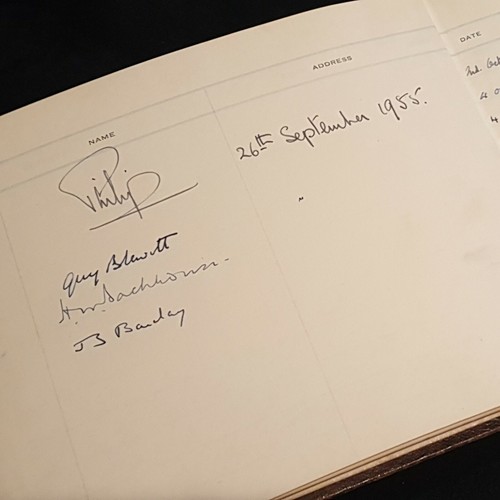 NAME
ADDRESS
DATE
Philip
26th September 1955.
"
Guy Blewitt
H.W. Backhouse
J B Barclay